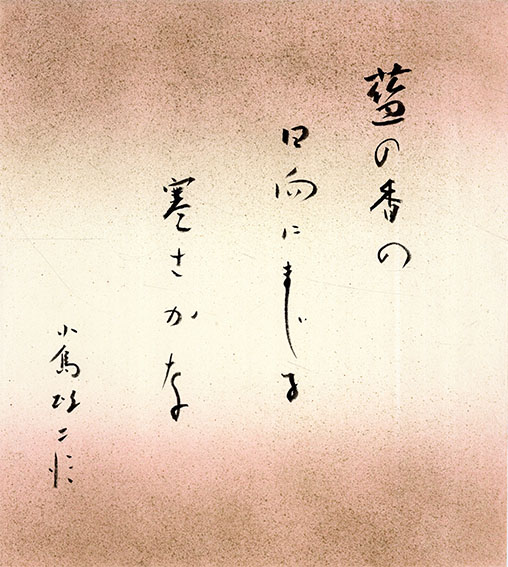 藍の香の
日向にまじる
寒さかな
小島政二郎